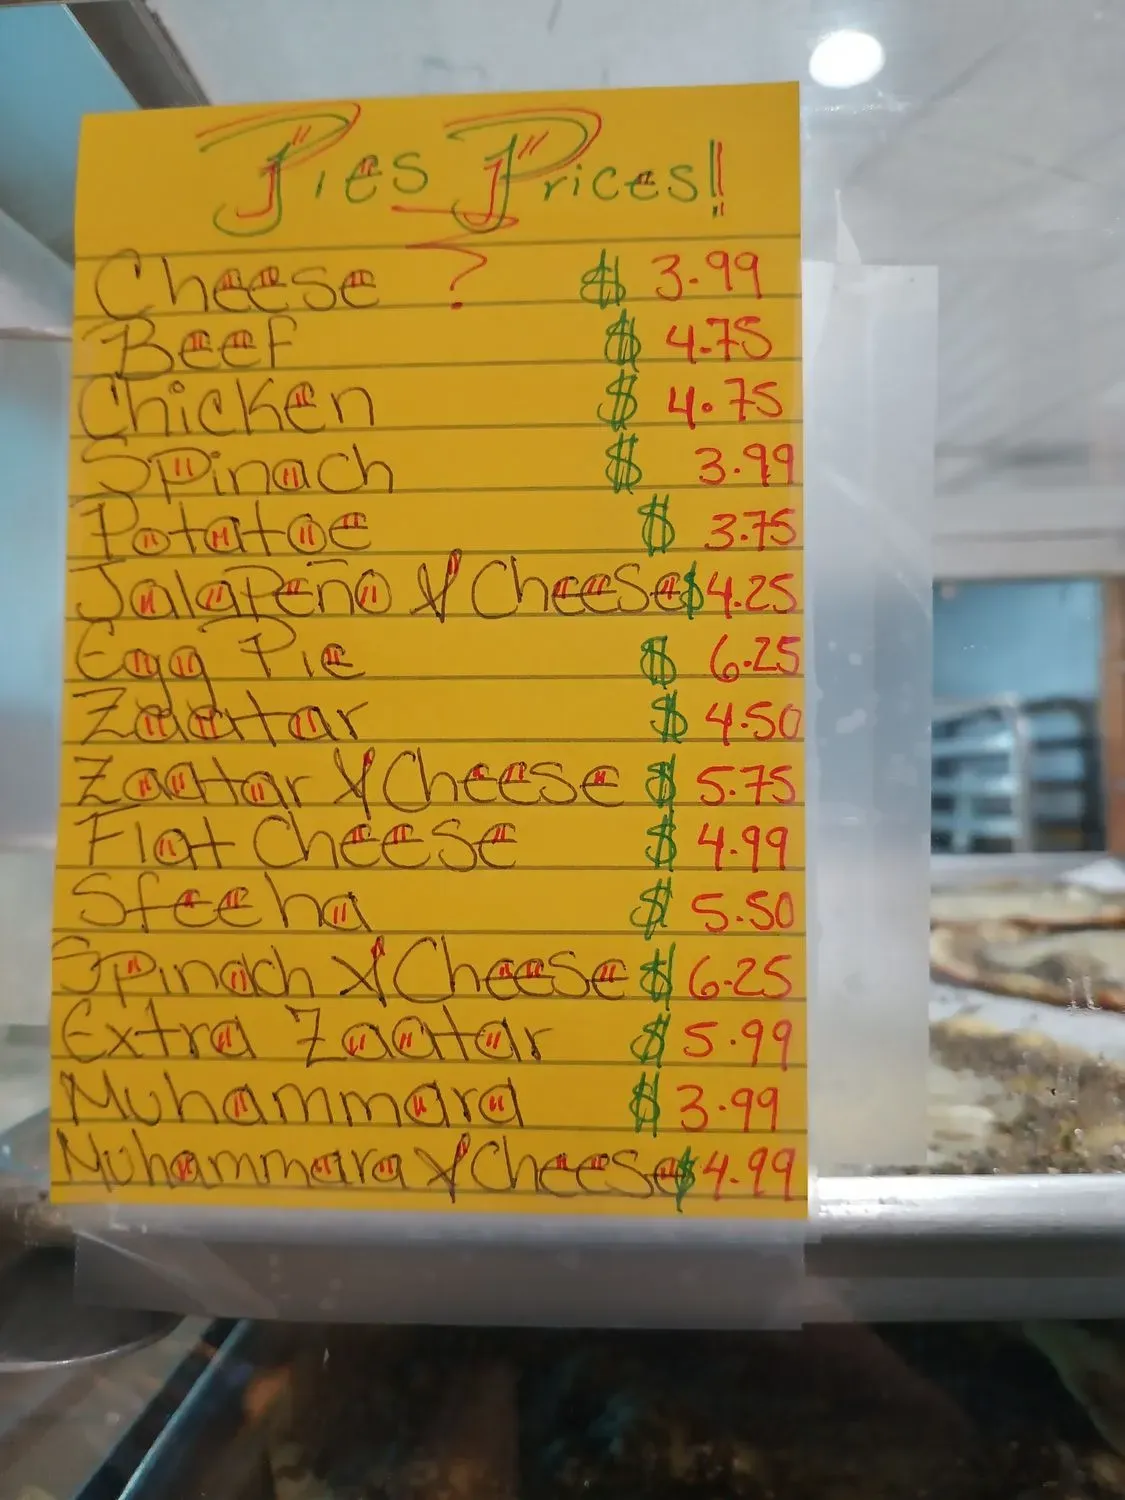 Pies Prices!!
Cheese ? $ 3.99
Beef $ 4.75
Chicken $ 4.75
Spinach $ 3.99
Potatoe $ 3.75
Jalapeño & Cheese $4.25
Egg Pie $ 6.25
Zaatar $ 4.50
Zaatar & Cheese $ 5.75
Flat Cheese $ 4.99
Sfeeha $ 5.50
Spinach & Cheese $ 6.25
Extra Zaatar $ 5.99
Muhammara $ 3.99
Muhammara & Cheese $4.99